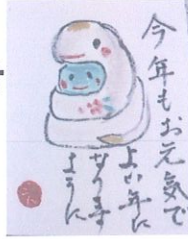 今年もお元気で
よい年に
なります
ように